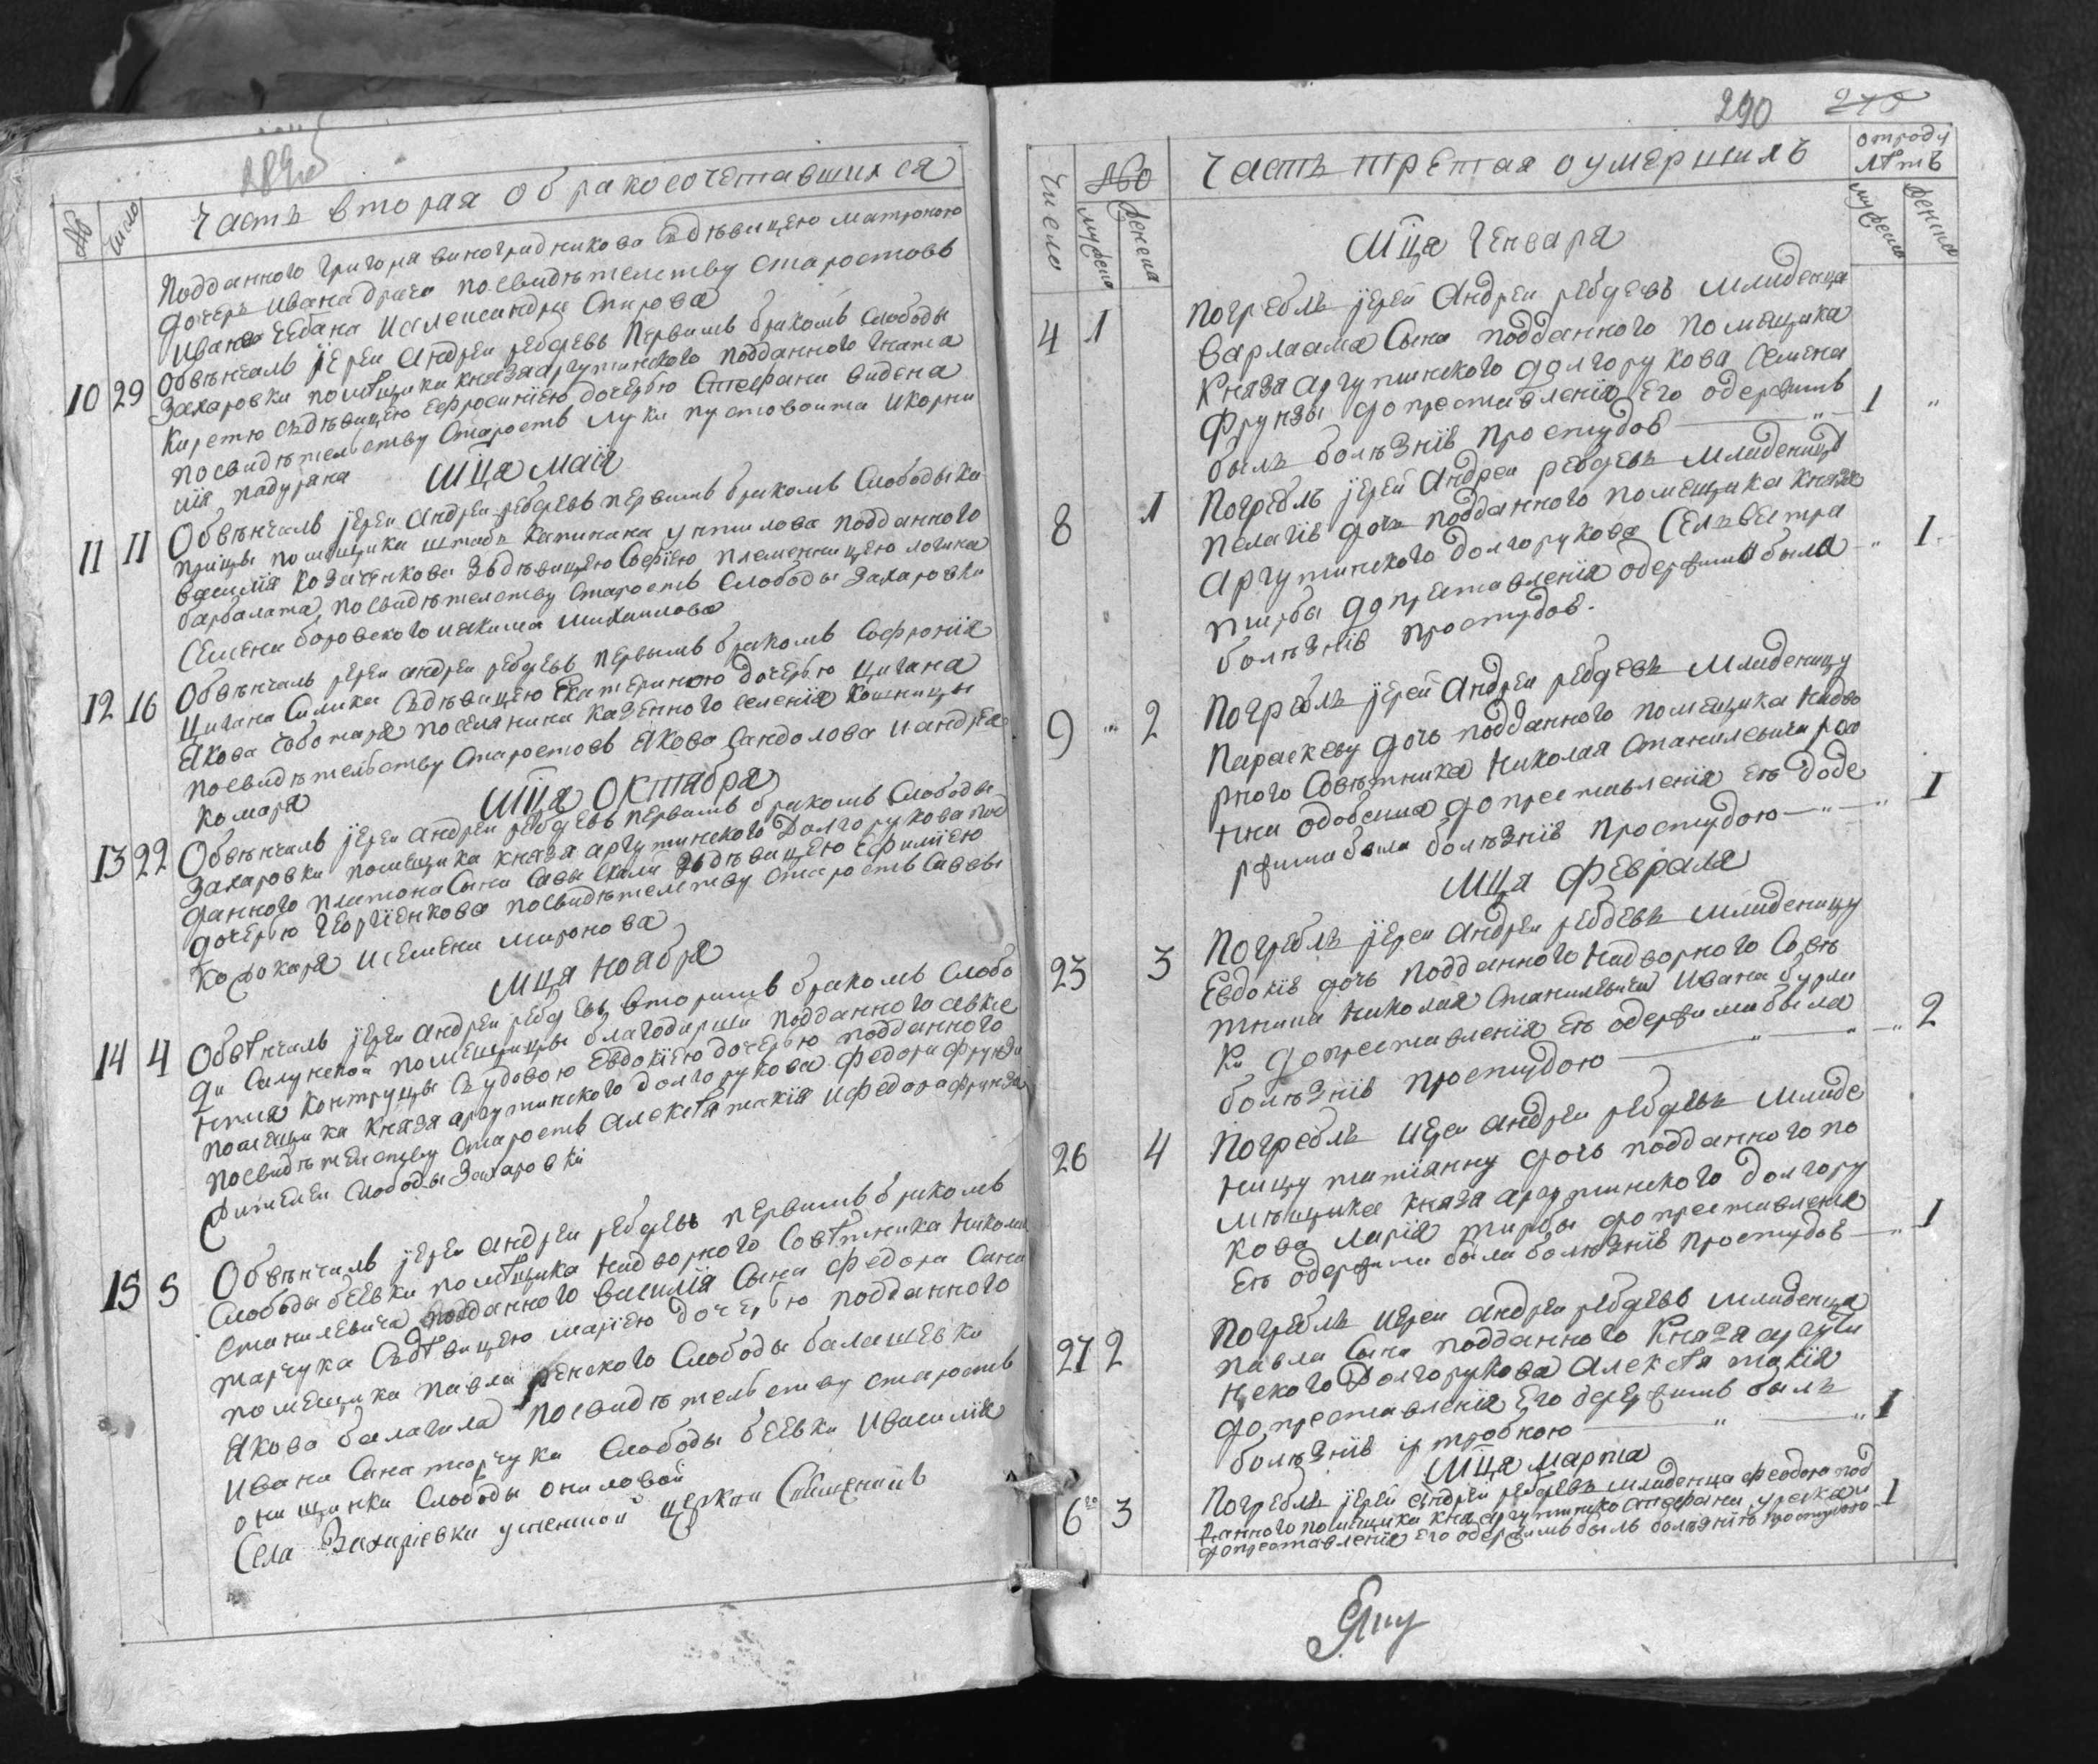 Часть вторая о бракосочетавшихся
№ Число
Подданного Григора виноградникова Съ девицею матроною
дочерь ивана драго посвидѣтелству старостовъ
ивана чебана и александра Спирова
10 29 Обвѣнчалъ іереи андреи ребдевъ первимъ бракомъ Слободы
Захаровки помѣщика князя аргутинского подданного Гната
Киретю съдѣвицею Ефросиніею дочерью Стефана видена
посвидѣтелству старостъ луки пустовоита и корни
лія падурана
Мца маія
11 11 Обвѣнчалъ іереи андреи ребдевъ первимъ бракомъ Слободы ка
прицы помѣщика штабъ капитана подданного
василія козаченкова Здѣвицею Софіею племенницею логина
барбалата, посвидѣтелству старостъ слободы Захаровки
Семена боровского и якима михаилова
12 16 Обвѣнчалъ іереи андреи ребдевъ первымъ бракомъ Софронія
цигана Съдѣвицею Екатериною дочерью цигана
Якова чоботаря поселянина казенного селенія кошницы
посвидѣтелству старостовъ Якова Сандолова и андрея
комаря
Мца Октабря
13 22 Обвѣнчалъ іереи андреи ребдевъ первимъ бракомъ слободы
Захаровки помещика князя аргутинского Долгорукова под
данного платона Сына Савы Скали Здѣвицею Ефиміею
дочерью Георгіенкова посвидѣтелству старостъ Савы
Кожокаря и семена миронова
Мца ноября
14 4 Обвѣнчалъ іереи андреи ребдевъ вторимъ бракомъ слобо
ди помещицы благодарши подданного авксе
нтия контрущы Съ удовою Евдокіею дочерью подданного
помещика князя аргутинского долгорукова федора фрунзи
посвидѣтелству старостъ алексѣя такія и федора фрунзи
жителеи слободы Захаровки
15 5 Обвѣнчалъ іереи андреи ребдевъ первимъ бракомъ
слободы беевки помѣщика надворного Совѣтника никола
станилевича подданного василія Сына федора Сана
тарчука Съдѣвицею маріею дочерью подданного
помещика павла ренского Слободы балашевки
Якова балагила посвидѣтелству старостъ
ивана Санатарчука слободы беевки и василія
онищинка слободы ониловои
Села Захаріевки успенской церкви Священникъ
290
Число № мужеска женска
Часть третая о умершихъ
отроду лѣтъ
мужеска женска
Мца Генваря
4 1 погребль іереи андреи ребдевъ младенца
варлаама Сына подданного помѣщика
Князя аргутинского долгорукова Семена
фрунзы допреставленія Его одержимъ
былъ болѣзнів простудов 1 "
8 1 Погребль іереи андреи ребдевъ младеницу
пелагів дочь подданного помещика князя
аргутинского долгорукова Селвестра
тирбы допреставленія одержима была " 1
болѣзнів простудов.
9 " 2 Погребль іереи андреи ребдевъ младеницу
параскеву дочь подданного помещика надво
рного Совѣтника николая Станилевича
одобеша допреставленія Еѣ оде
ржима была болѣзнів простудою " " 1
Мца февраля
23 3 Погребль іереи андреи ребдевъ младеницу
Евдокію дочь подданного надворного Совѣ
тника николая станилевича ивана бурла
ки допреставленія Еѣ одержима была
болѣзнів простудою " " 2
26 4 Погребль иереи андреи ребдевъ младе
ницу татіянну дочь подданного по
мѣщика князя аргутинского долгору
кова ларія тирбы допреставленія
Еѣ одержима была болѣзнів простудов " 1
27 2 погребль иереи андреи ребдевъ младенца
павла Сына подданного князя аргути
нского Долгорукова Алексѣя такія
допреставленія Его одержимъ былъ
болѣзнів утробною " " 1
Мца марта
6го 3 Погребль іереи андреи ребдевъ младенца феодора под
данного помѣщика кня аргутинско стефана
допреставленія Его одержимъ былъ болѣзнію простудою 1